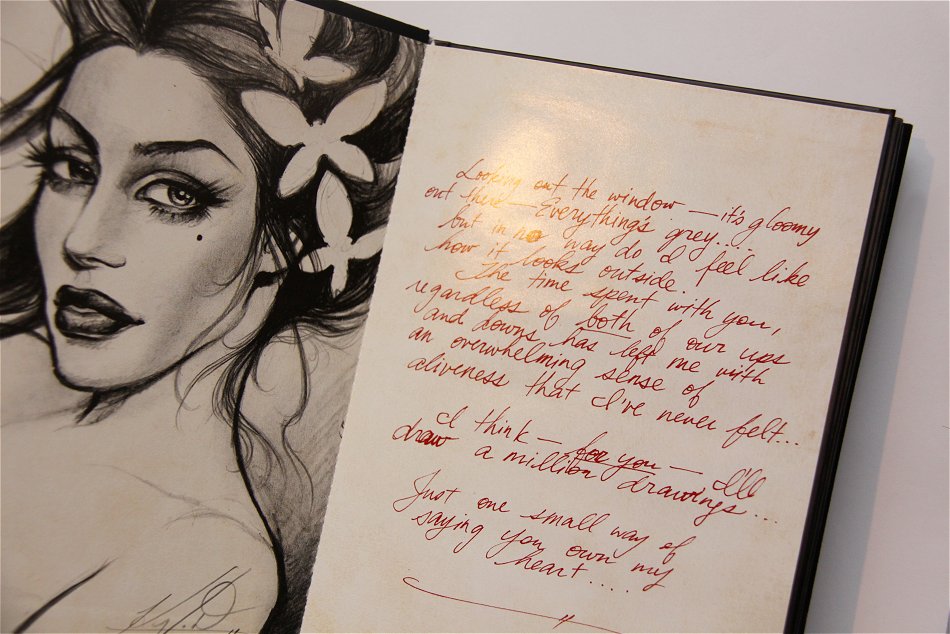 Looking out the window — it's gloomy
out there — Everything's grey....
but in no way do I feel like
how it looks outside.
The time spent with you,
regardless of both of our ups
and downs has left me with
an overwhelming sense of
aliveness that I've never felt...
I think — for you — I'll
draw a million drawings...
Just one small way of
saying you own my
heart....